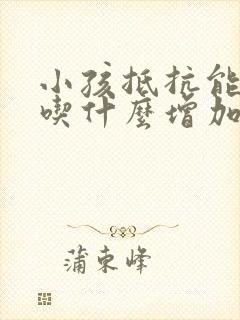 小孩抵抗能
喫什麼增加
蒲東峰